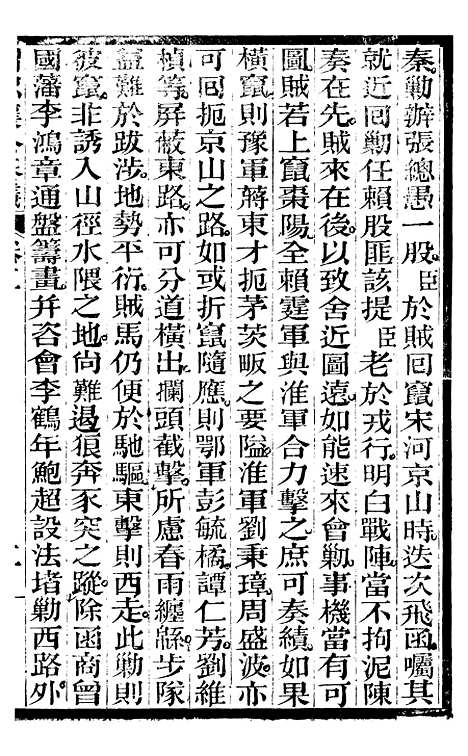 秦勦辦張總愚一股臣於賊囘竄宋河京山時迭次飛函囑其
就近囘勦任賴股匪該提臣老於戎行明白戰陣當不拘泥陳
奏在先賊來在後以致舍近圖遠如能速來會勦事機當有可
圖賊若上竄棗陽全賴霆軍與淮軍合力擊之庶可奏績如果
橫竄則豫軍蔣東才扼茅茨畈之要隘淮軍劉秉璋周盛波亦
可囘扼京山之路如或折竄隨應則鄂軍彭毓橘譚仁芳劉維
楨等屏蔽東路亦可分道橫出攔頭截擊所慮春雨纏緜步隊
難於跋涉地勢平衍賊馬仍便於馳驅東擊則西走此勦則
彼竄非誘入山徑水隈之地尙難遏狼奔豕突之蹤除函商曾
國藩李鴻章通盤籌畫幷咨會李鶴年鮑超設法堵勦西路外